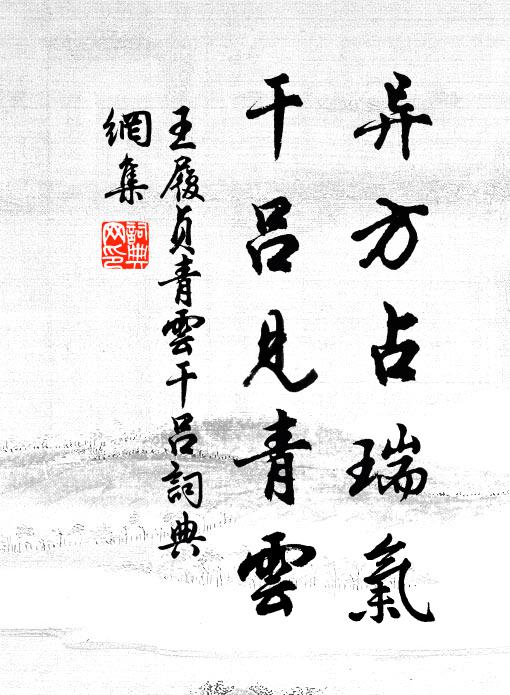 异方占瑞氣
干呂見青雲
王履貞青雲干呂詞典
網集
詞典
网印